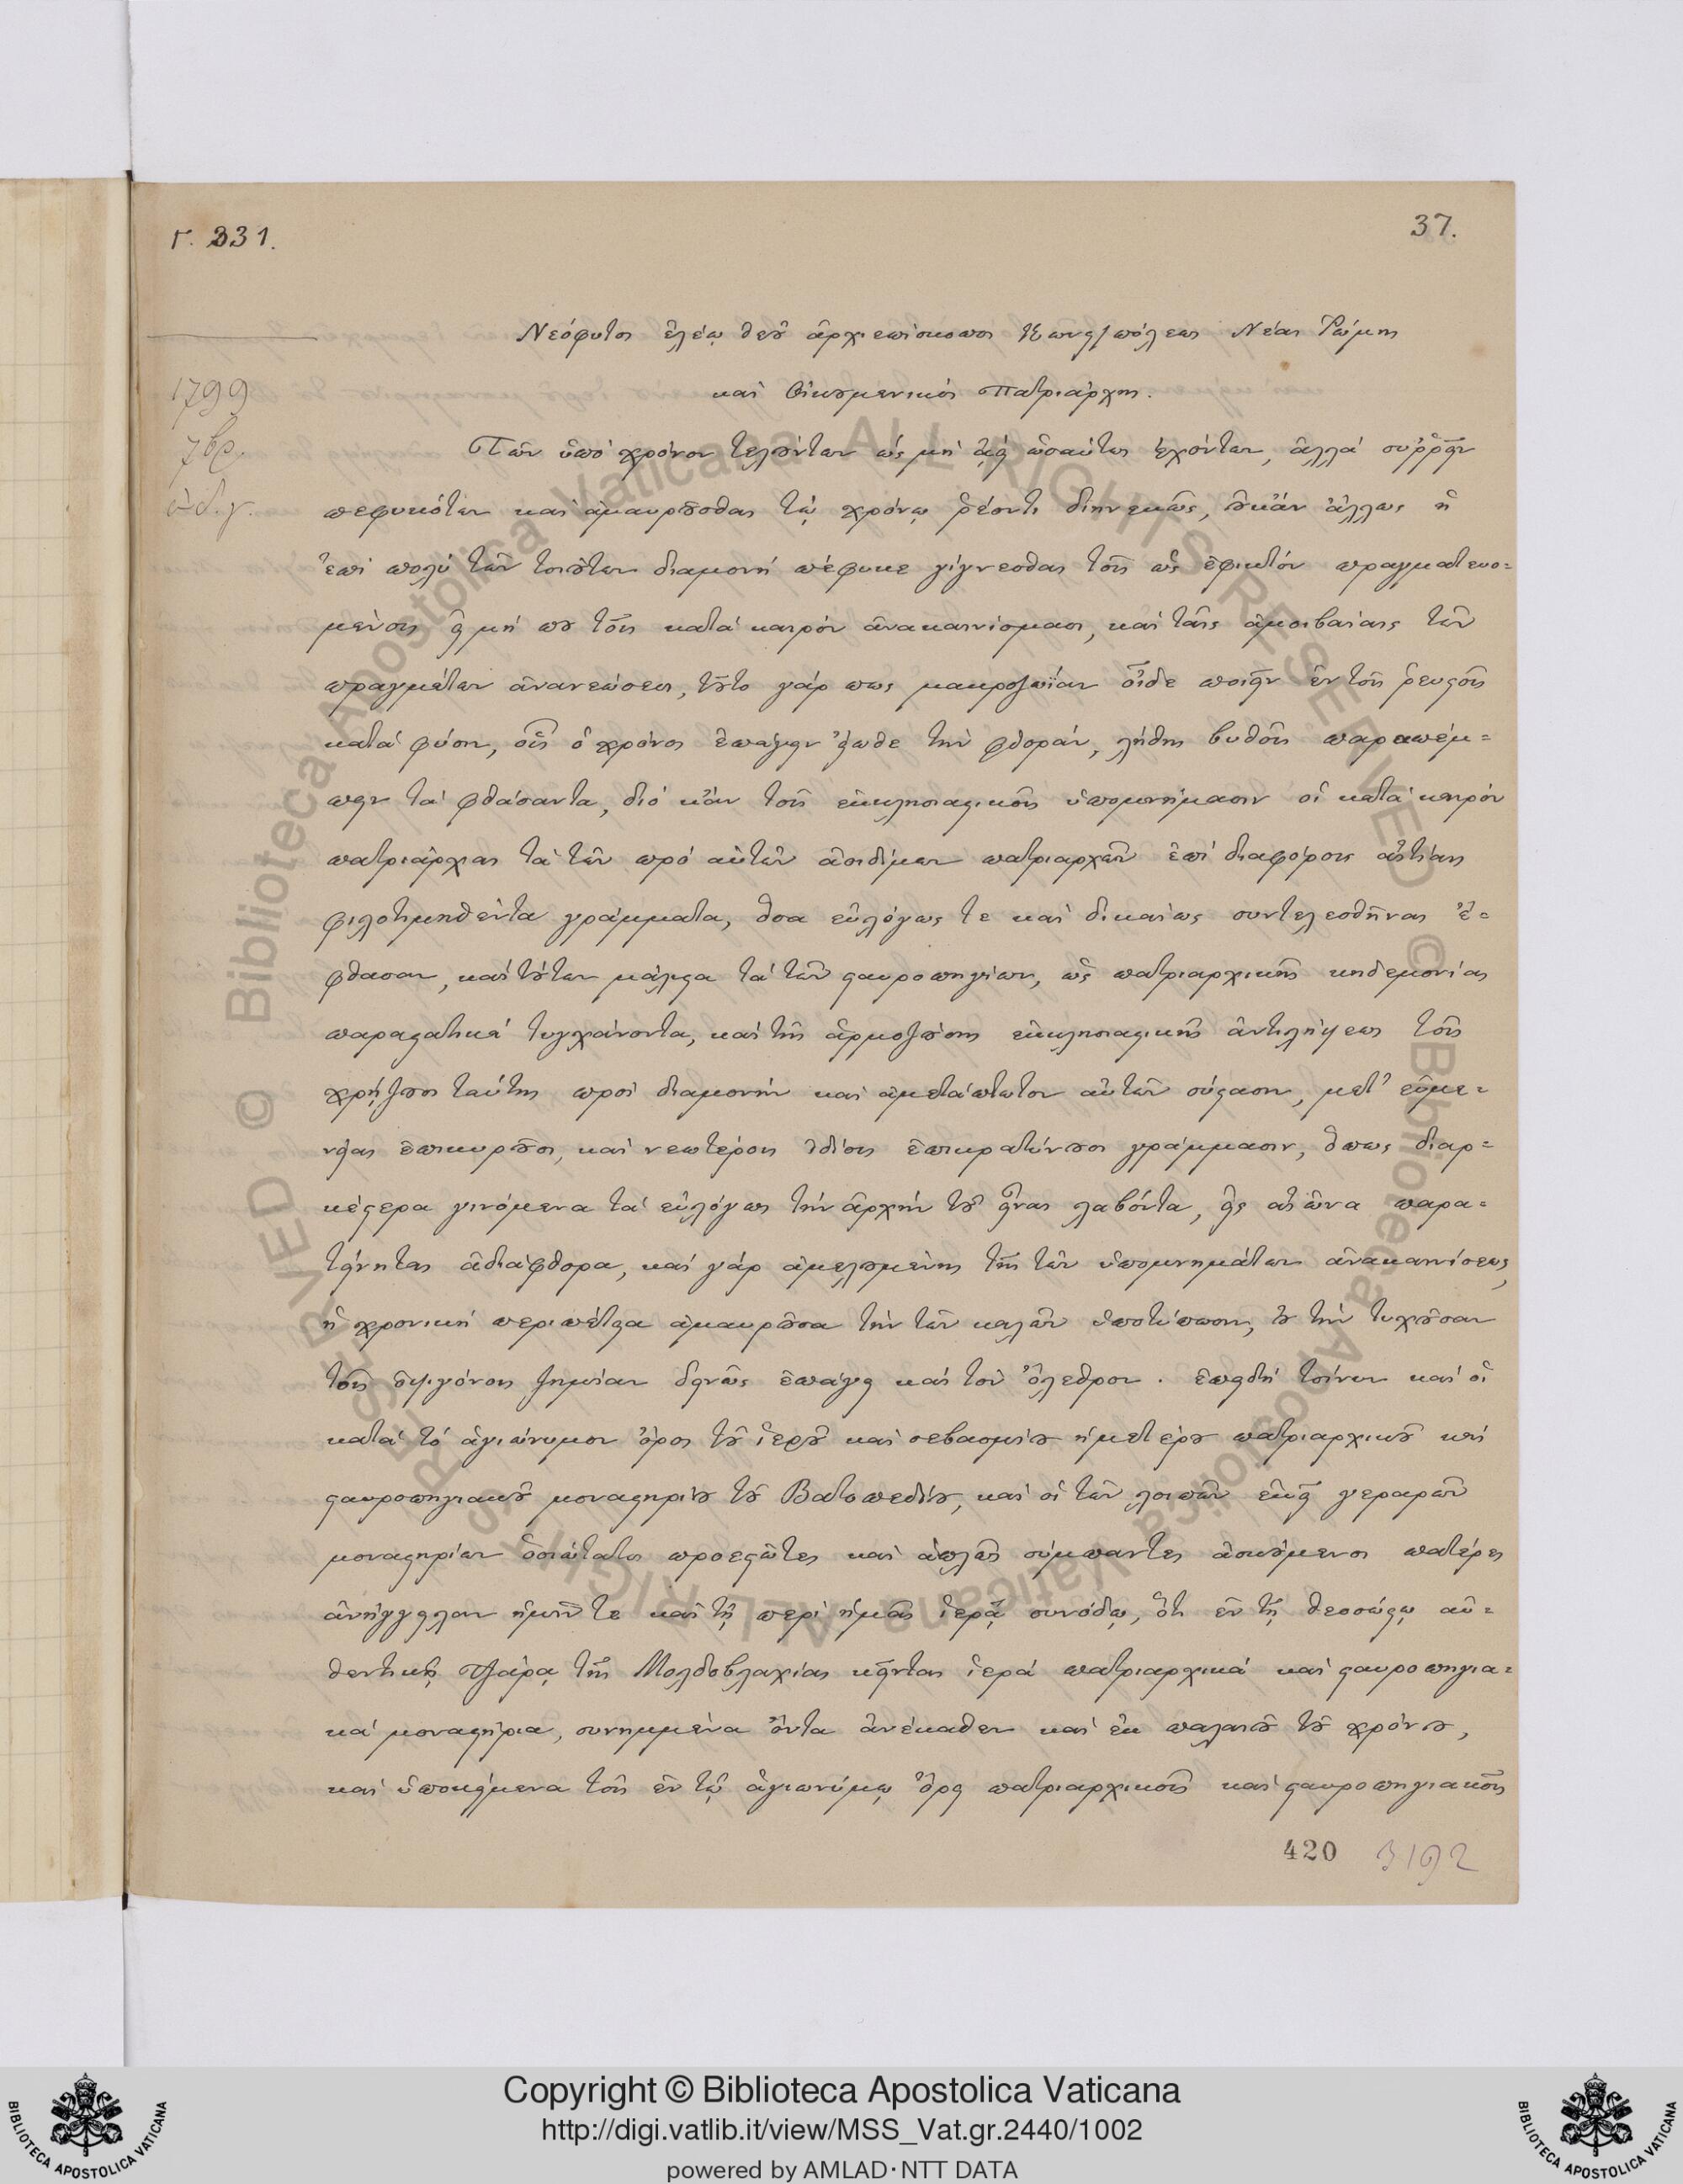 Γ. 331.
37.
Νεόφυτος ἐλέῳ θεοῦ ἀρχιεπίσκοπος Κωνςπόλεως Νέας Ῥώμης
1799
καὶ Οἰκουμενικὸς Πατριάρχης.
7βρ.
ἰνδ. γ.
Τῶν ὑπὸ χρόνον τελούντων ὡς μὴ ἀεὶ ὡσαύτως ἐχόντων, ἀλλὰ συῤῥεῖν
πεφυκότων καὶ ἀμαυροῦσθαι τῷ χρόνῳ ῥέοντι διηνεκῶς, οὐκ ἂν ἄλλως ἡ
ἐπὶ πολὺ τῶν τοιούτων διαμονὴ πέφυκε γίγνεσθαι τοῖς ὡς ἐφικτὸν πραγματευο=
μένοις εἰ μή που τοῖς κατὰ καιρὸν ἀνακαινίσμασι, καὶ ταῖς ἀμοιβαίαις τῶν
πραγμάτων ἀνανεώσεσι, τοῦτο γάρ πως μακροζωΐαν οἶδε ποιεῖν ἐν τοῖς ῥευστοῖς
κατὰ φύσιν, οἷς ὁ χρόνος ἐπάγειν εἴωθε τὴν φθοράν, λήθης βυθοῖς παραπέμ=
πειν τὰ φθάσαντα, διὸ κἂν τοῖς ἐκκλησιαστικοῖς ὑπομνήμασιν οἱ κατὰ καιρὸν
πατριάρχαι τὰ τῶν πρὸ αὐτῶν ἀοιδίμων πατριαρχῶν ἐπὶ διαφόροις αἰτίαις
φιλοτιμηθέντα γράμματα, ὅσα εὐλόγως τε καὶ δικαίως συντελεσθῆναι ἔ=
φθασαν, καὶ τούτων μάλιστα τὰ τῶν σταυροπηγίων, ὡς πατριαρχικῆς κηδεμονίας
παραστατικὰ τυγχάνοντα, καὶ τῆς ἁρμοζούσης ἐκκλησιαστικῆς ἀντιλήψεως τοῖς
χρῄζουσι ταύτης πρὸς διαμονὴν καὶ ἀμετάπτωτον αὐτῶν σύστασιν, μετ' εὐμε=
νείας ἐπικυροῦσι, καὶ νεωτέροις ἰδίοις ἐπικρατύνουσι γράμμασιν, ὅπως διαρ=
κέστερα γινόμενα τὰ εὐλόγως τὴν ἀρχὴν τοῦ εἶναι λαβόντα, εἰς αἰῶνα παρα=
τείνηται ἀδιάφθορα, καὶ γὰρ ἀμελουμένης τῆς τῶν ὑπομνημάτων ἀνακαινίσεως,
ἡ χρονικὴ περιπέτεια ἀμαυροῦσα τὴν τῶν καλῶν ὑποτύπωσιν, οὐ τὴν τυχοῦσαν
τοῖς ὀψιγόνοις ζημίαν δεινῶς ἐπάγει καὶ τὸν ὄλεθρον. ἐπειδὴ τοίνυν καὶ οἱ
κατὰ τὸ ἁγιώνυμον ὄρος τοῦ ἱεροῦ καὶ σεβασμίου ἡμετέρου πατριαρχικοῦ καὶ
σταυροπηγιακοῦ μοναστηρίου τοῦ Βατοπεδίου, καὶ οἱ τῶν λοιπῶν ἐκεῖ γεραρῶν
μοναστηρίων ὁσιώτατοι προεστῶτες καὶ ἁπλῶς σύμπαντες ἀσκούμενοι πατέρες
ἀνήγγειλαν ἡμῖν τε καὶ τῇ περὶ ἡμᾶς ἱερᾷ συνόδῳ, ὅτι ἐν τῇ θεοσώστῳ αὐ=
θεντικῇ Τζάρᾳ τῆς Μολδοβλαχίας κεῖνται ἱερὰ πατριαρχικὰ καὶ σταυροπηγια=
κὰ μοναστήρια, συνημμένα ὄντα ἀνέκαθεν καὶ ἐκ παλαιοῦ τοῦ χρόνου,
καὶ ὑποκείμενα τοῖς ἐν τῷ ἁγιωνύμῳ ὄρει πατριαρχικοῖς καὶ σταυροπηγιακοῖς
420 3192
© Biblioteca Apostolica Vaticana ALL RIGHTS RESERVED
© Biblioteca Apostolica Vaticana ALL RIGHTS RESERVED
Copyright © Biblioteca Apostolica Vaticana
http://digi.vatlib.it/view/MSS_Vat.gr.2440/1002
powered by AMLAD·NTT DATA
BIBLIOTECA APOSTOLICA VATICANA
BIBLIOTECA APOSTOLICA VATICANA